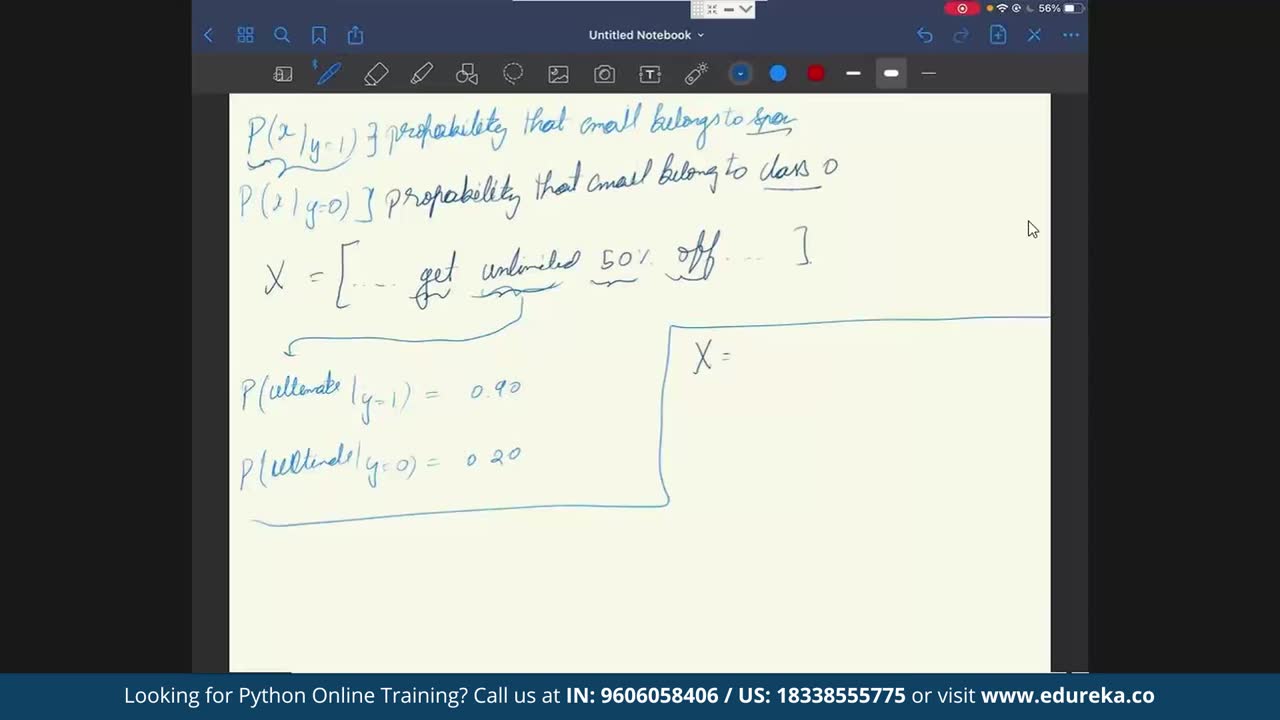 56%
Untitled Notebook
P(x | y=1) } propability that email belongs to spam
P(x | y=0) } propability that email belong to class 0
X = [.... get unlimited 50% off .... ]
X =
P( | y=1) = 0.90
P( | y=0) = 0.20
Looking for Python Online Training? Call us at IN: 9606058406 / US: 18338555775 or visit www.edureka.co